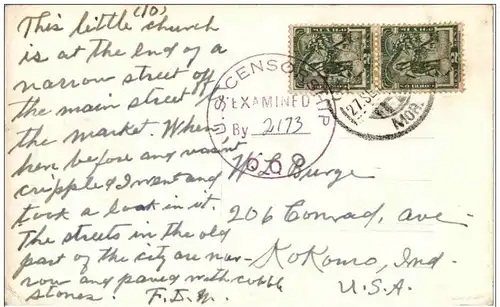 (10)
This little church
is at the end of a
narrow street off
the main street to
the market. When
here before and wasnt
crippled I went and
took a look in it.
The streets in the old
part of the city are nar-
row and paved with cobble
stones. F.D.M.
U.S. CENSORSHIP
EXAMINED
By 2173
668
MEXICO
MEXICO
27. SE
MOR.
W. L. Burge
206 Conrad, ave-
Kokomo, Ind.
U.S.A.